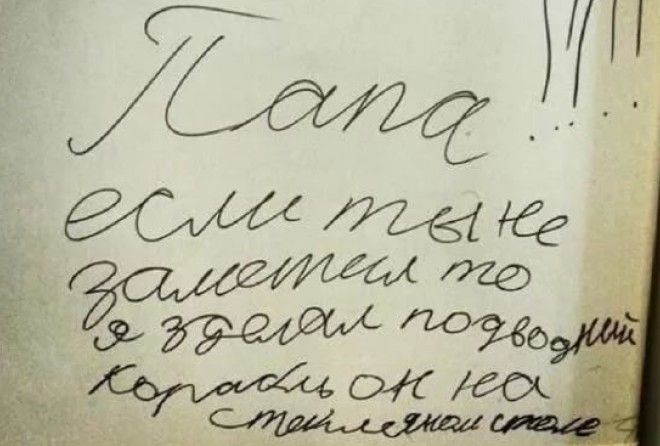 Папа!!!!
если ты не
заметил то
я зделал подводний
корабль он на
стекляном столе